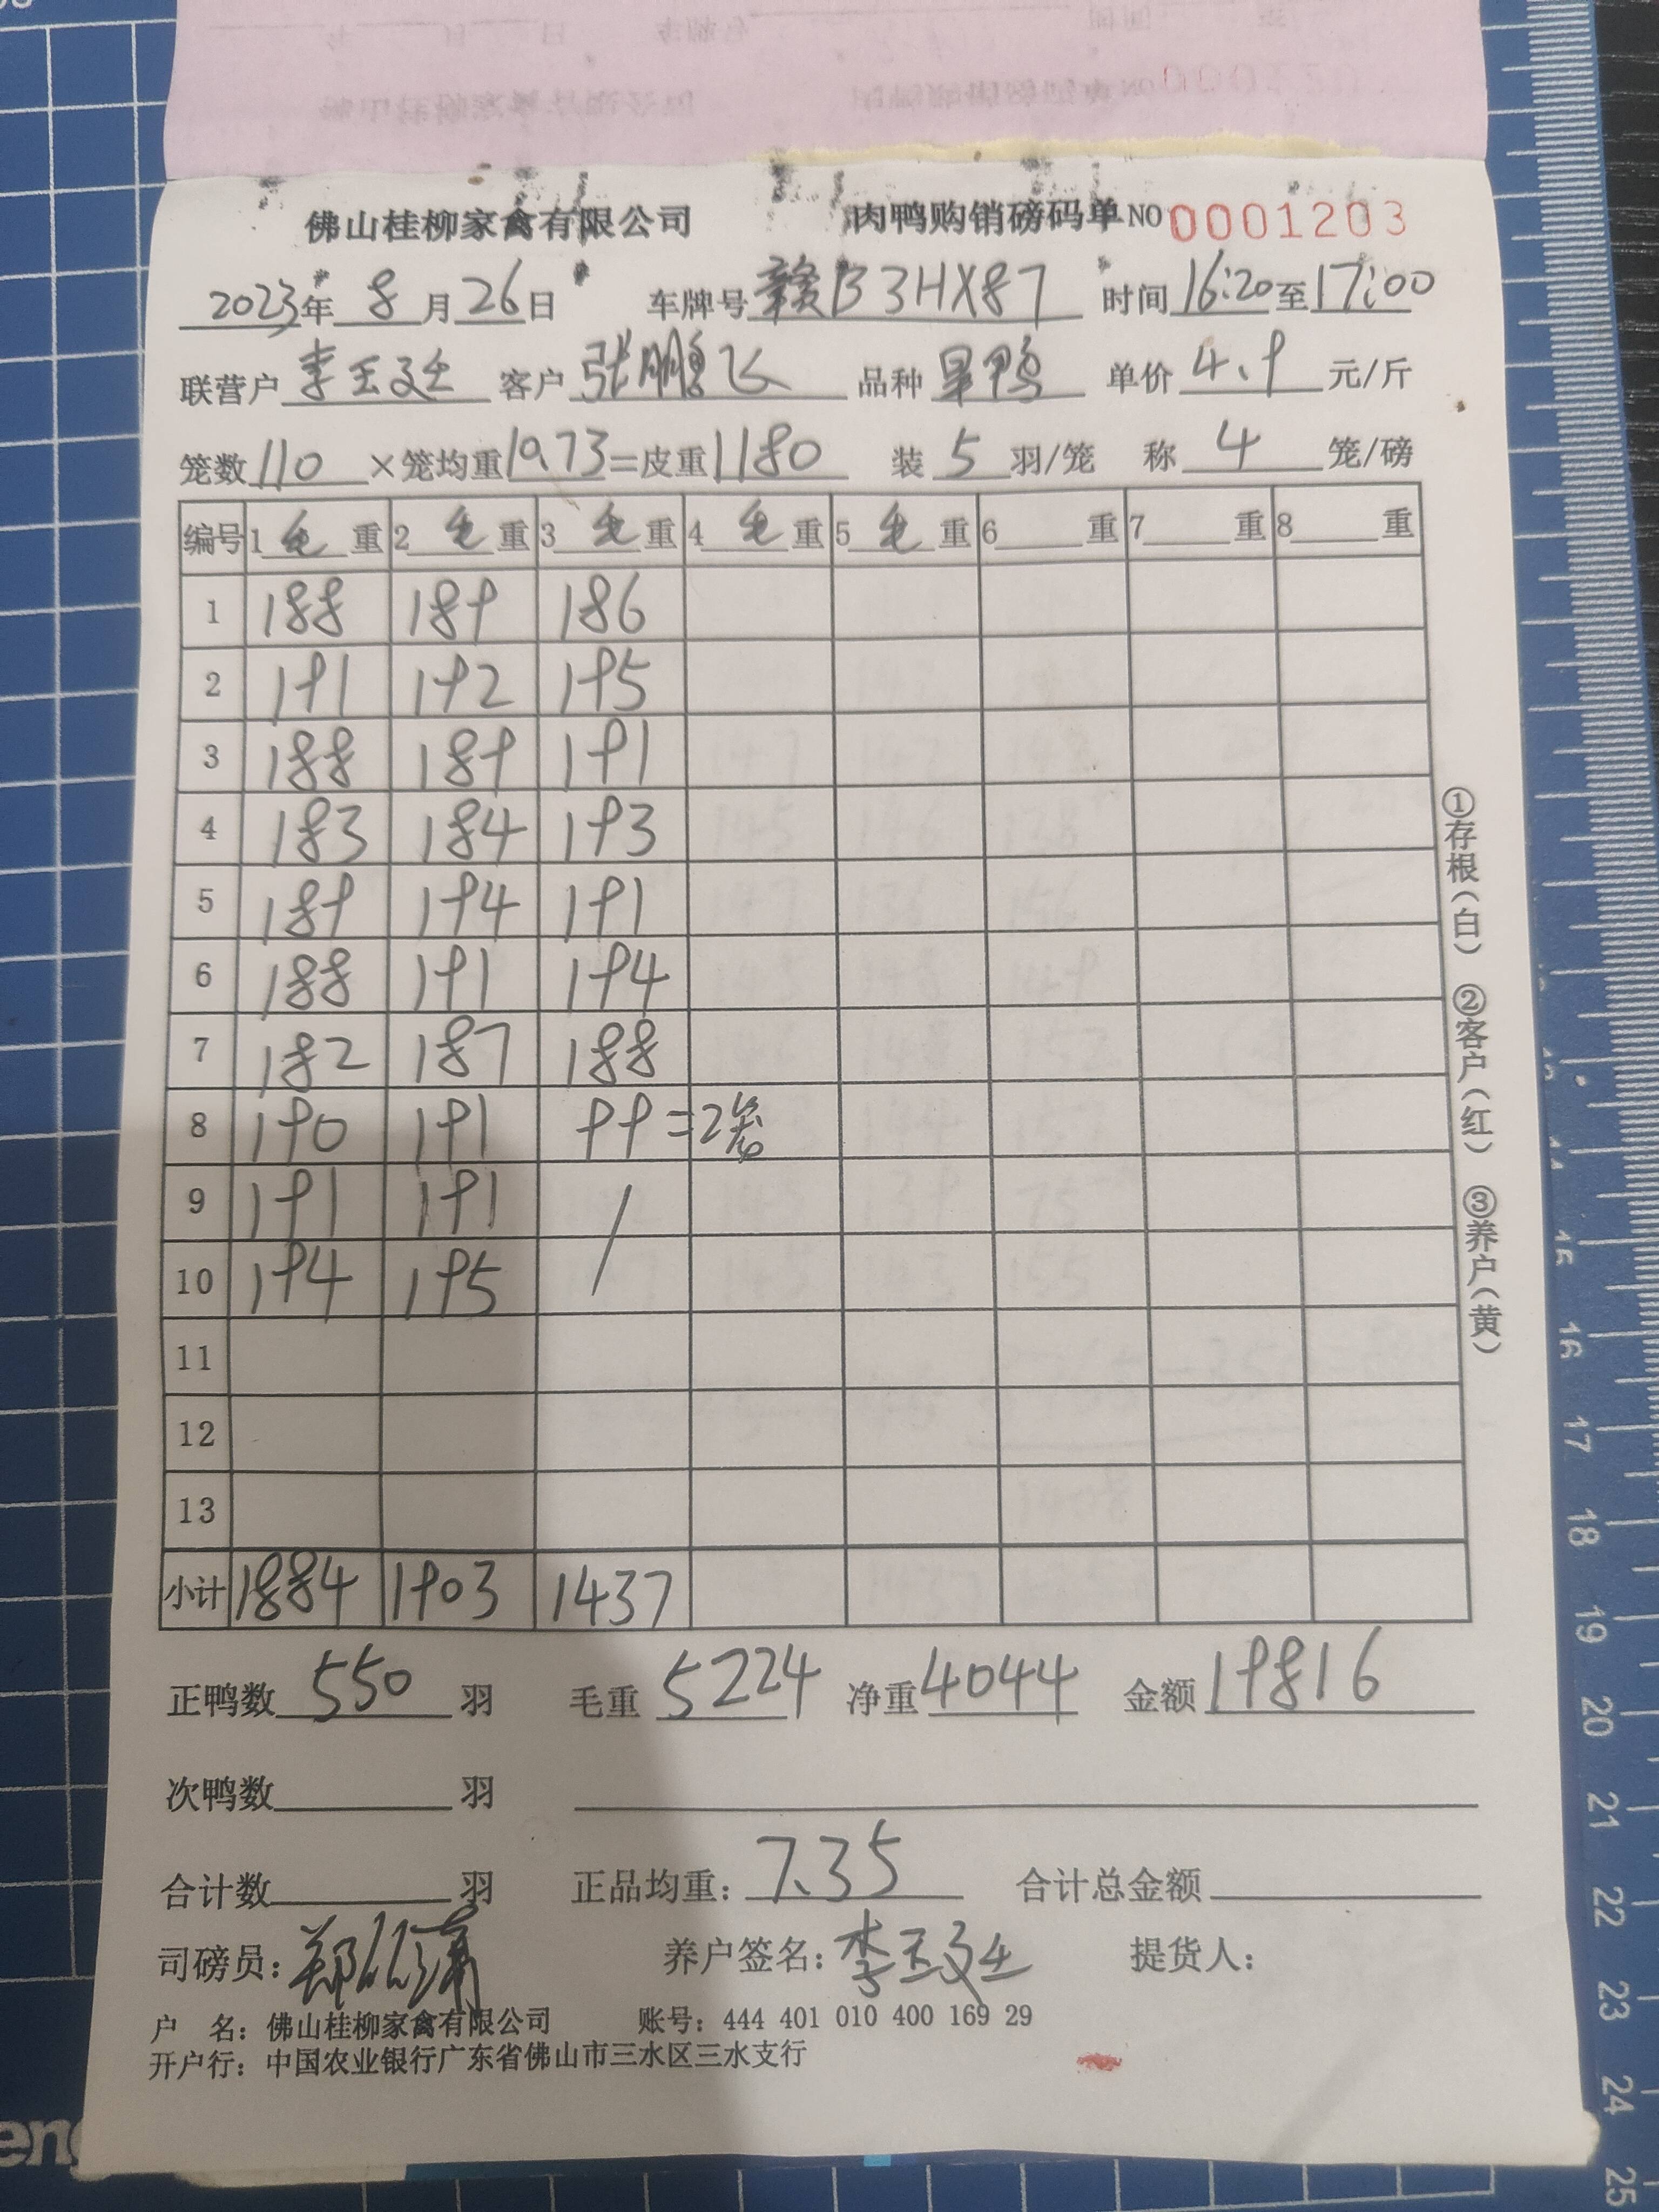 佛山桂柳家禽有限公司 肉鸭购销磅码单 NO 0001203
2023年 8月26日 车牌号 赣B3HX87 时间 16:20至17:00
联营户 李玉廷 客户 张鹏飞 品种 旱鸭 单价 4.9 元/斤
笼数 110 ×笼均重 10.73=皮重 1180 装 5 羽/笼 称 4 笼/磅
编号 1毛重 2毛重 3毛重 4毛重 5毛重 6重 7重 8重
1 188 189 186
2 191 192 195
3 188 189 191
4 183 184 193
5 189 194 191
6 188 191 194
7 182 187 188
8 190 191 99=2笼
9 191 191 /
10 194 195
11
12
13
小计 1884 1903 1437
正鸭数 550 羽 毛重 5224 净重 4044 金额 19816
次鸭数 羽
合计数 羽 正品均重: 7.35 合计总金额
司磅员: 郑 养户签名: 李玉廷 提货人:
户 名: 佛山桂柳家禽有限公司 账号: 444 401 010 400 169 29
开户行: 中国农业银行广东省佛山市三水区三水支行
①存根(白) ②客户(红) ③养户(黄)
15
16
17
18
19
20
21
22
23
24
25